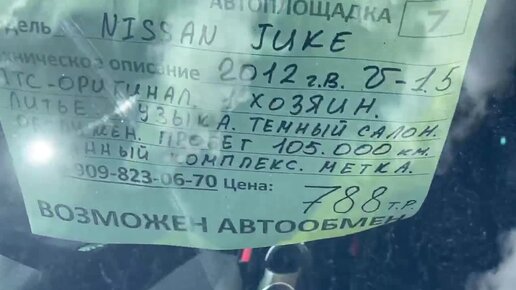 АВТОПЛОЩАДКА 7
дель NISSAN JUKE
хническое описание 2012 г.в. V-1.5
ПТС-ОРИГИНАЛ. 1 ХОЗЯИН.
ЛИТЬЁ. МУЗЫКА. ТЕМНЫЙ САЛОН.
ПРОБЕГ 105.000 КМ.
ННЫЙ КОМПЛЕКС. МЕТКА.
909-823-06-70 Цена: 788 т.р.
ВОЗМОЖЕН АВТООБМЕН